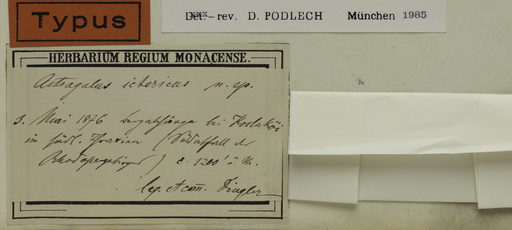 Typus
Det.– rev. D. PODLECH München 1985
HERBARIUM REGIUM MONACENSE.
Astragalus ictericus n. sp.
3. Mai 1876 bei
in südl. Thracien (Südabfall der
Rhodopegebirges) c. 1200' ü. M.
leg. et com. Dingler